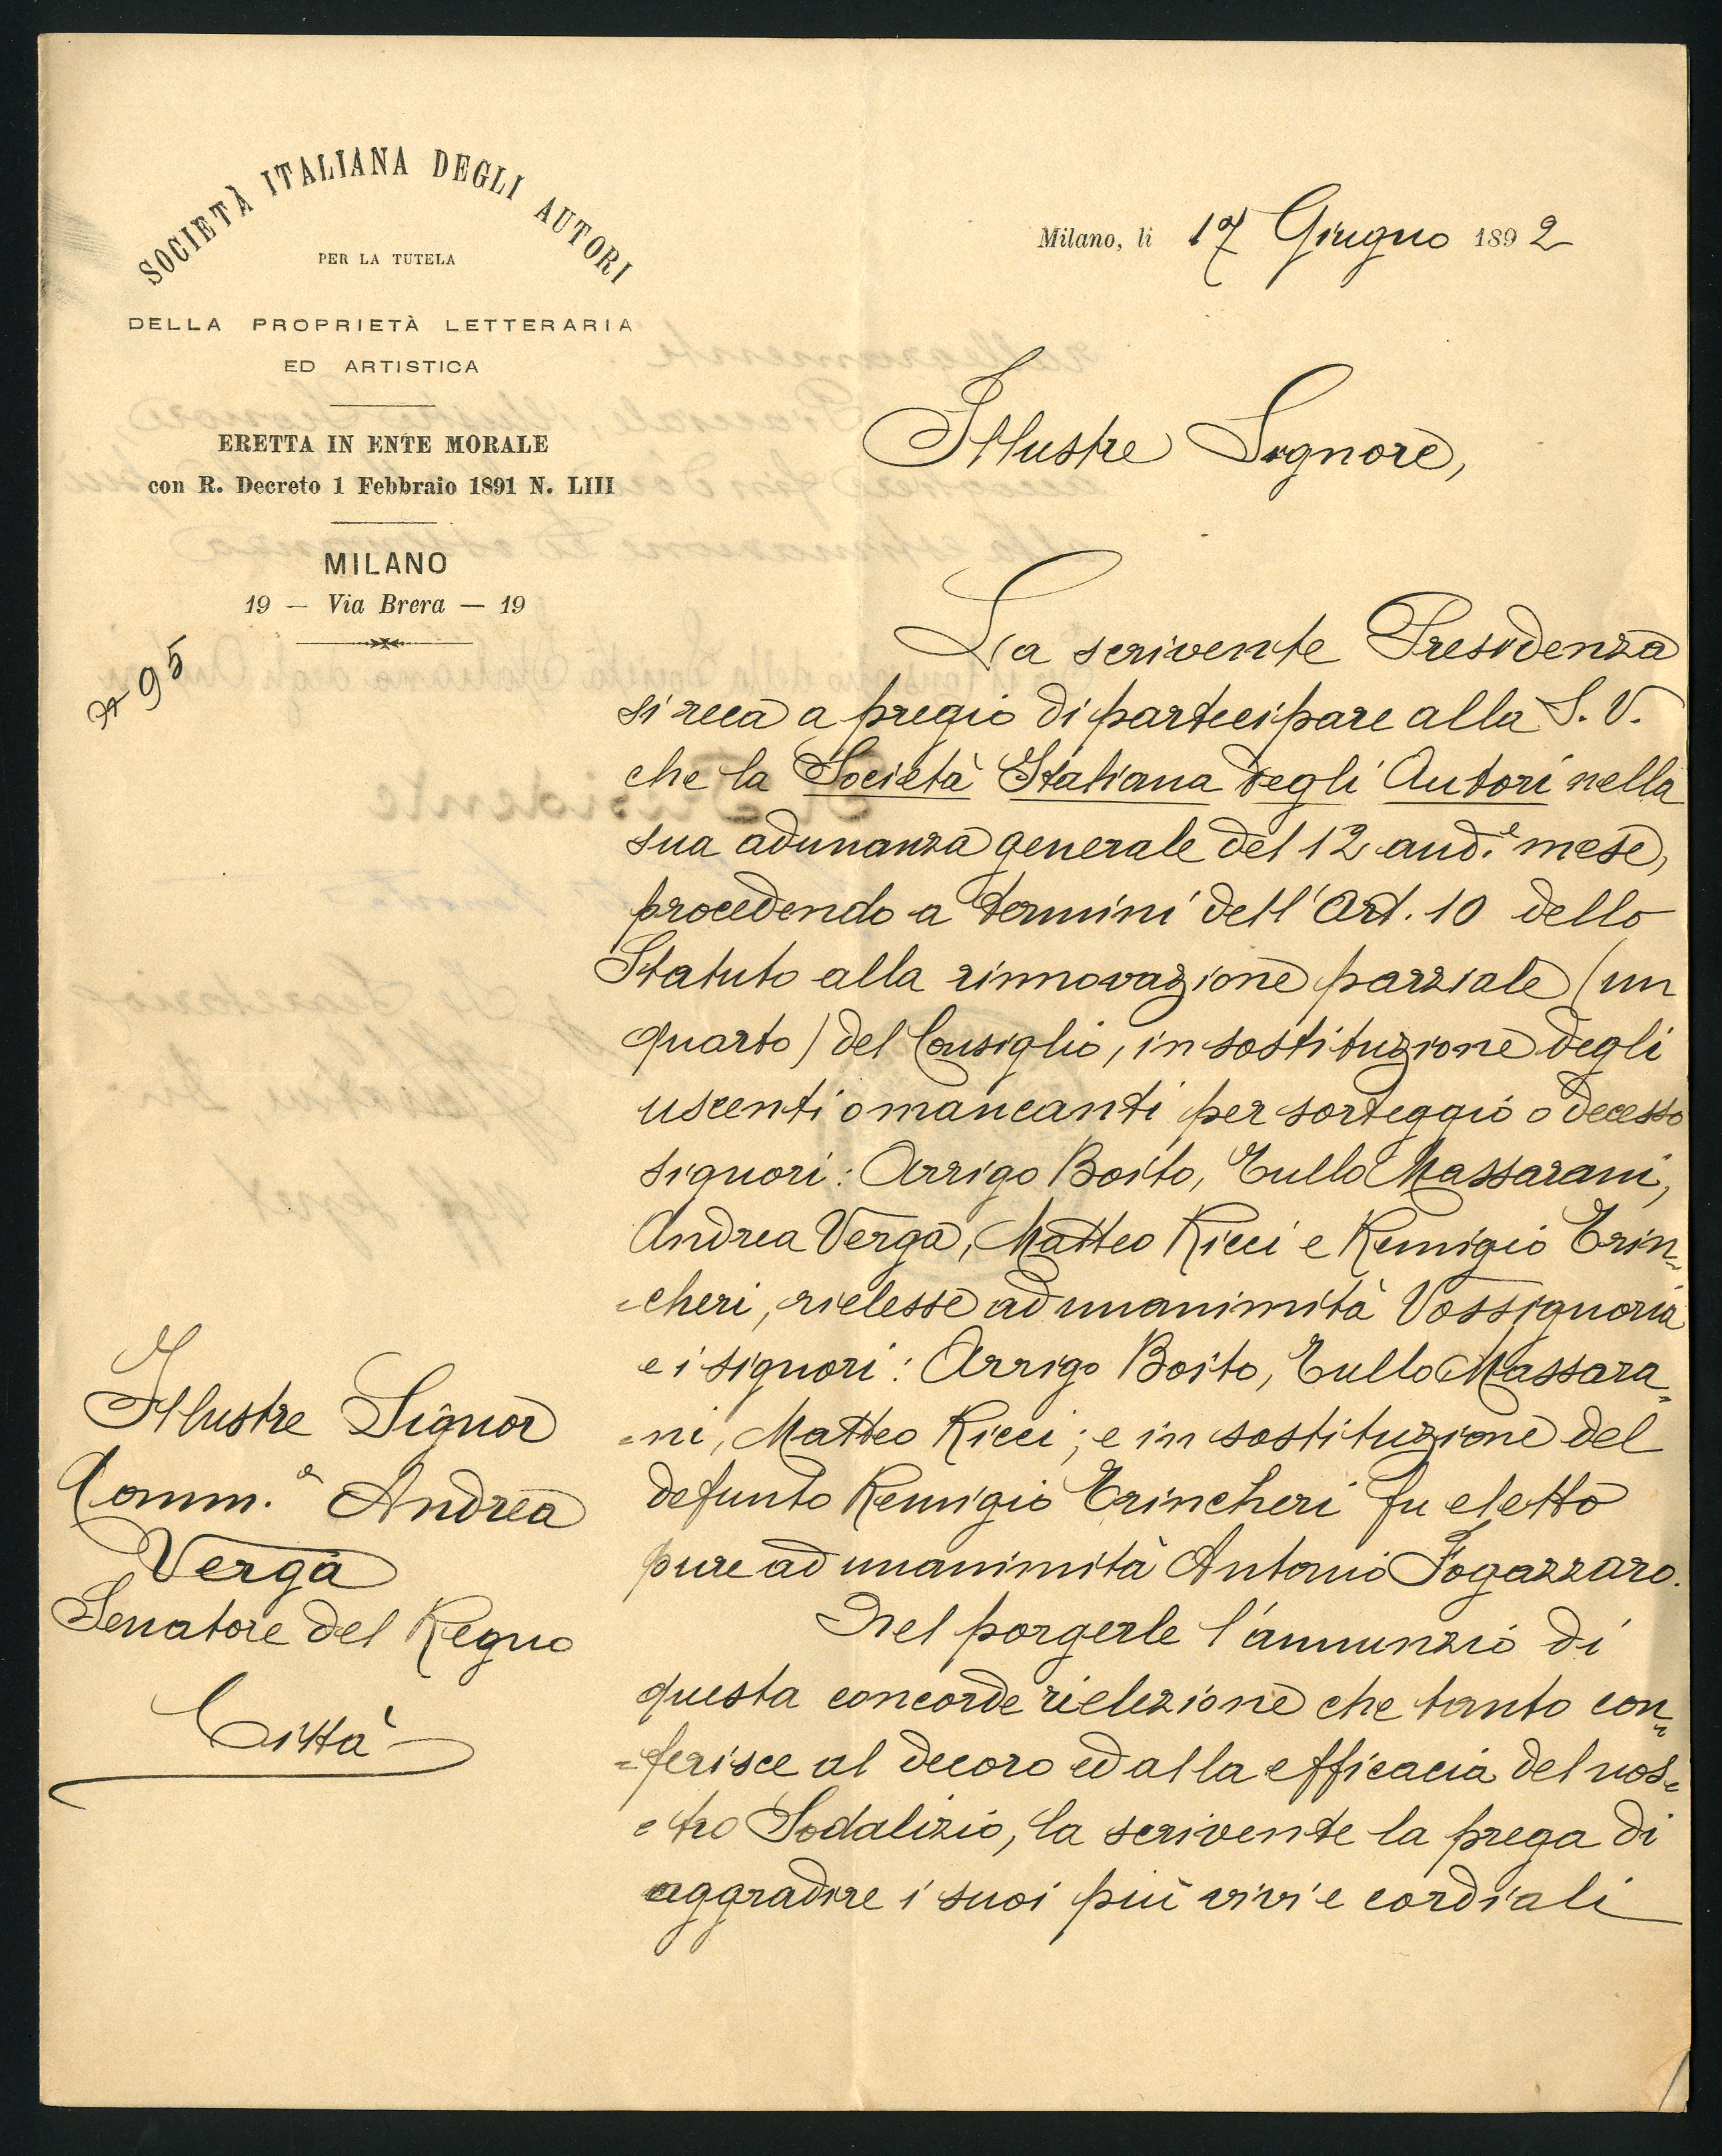 SOCIETÀ ITALIANA DEGLI AUTORI
PER LA TUTELA
DELLA PROPRIETÀ LETTERARIA
ED ARTISTICA
ERETTA IN ENTE MORALE
con R. Decreto 1 Febbraio 1891 N. LIII
MILANO
19 — Via Brera — 19
95
Milano, li 17 Giugno 1892
Illustre Signore,
La scrivente Presidenza
si reca a pregio di partecipare alla S. V.
che la Società Italiana degli Autori nella
sua adunanza generale del 12 and.e mese,
procedendo a termini dell'Art. 10 dello
Statuto alla rinnovazione parziale (un
quarto) del Consiglio, in sostituzione degli
uscenti o mancanti per sorteggio o decesso
signori: Arrigo Boito, Tullo Massarani,
Andrea Verga, Matteo Ricci e Remigio Trin=
=cheri, rielesse ad unanimità Vossignoria
e i signori: Arrigo Boito, Tullo Massara=
=ni, Matteo Ricci; e in sostituzione del
defunto Remigio Trincheri fu eletto
pure ad unanimità Antonio Fogazzaro.
Nel porgerle l'annunzio di
questa concorde rielezione che tanto con=
=ferisce al decoro ed alla efficacia del nos=
=tro Sodalizio, la scrivente la prega di
aggradire i suoi più vivi e cordiali
Illustre Signor
Comm.e Andrea
Verga
Senatore del Regno
Città